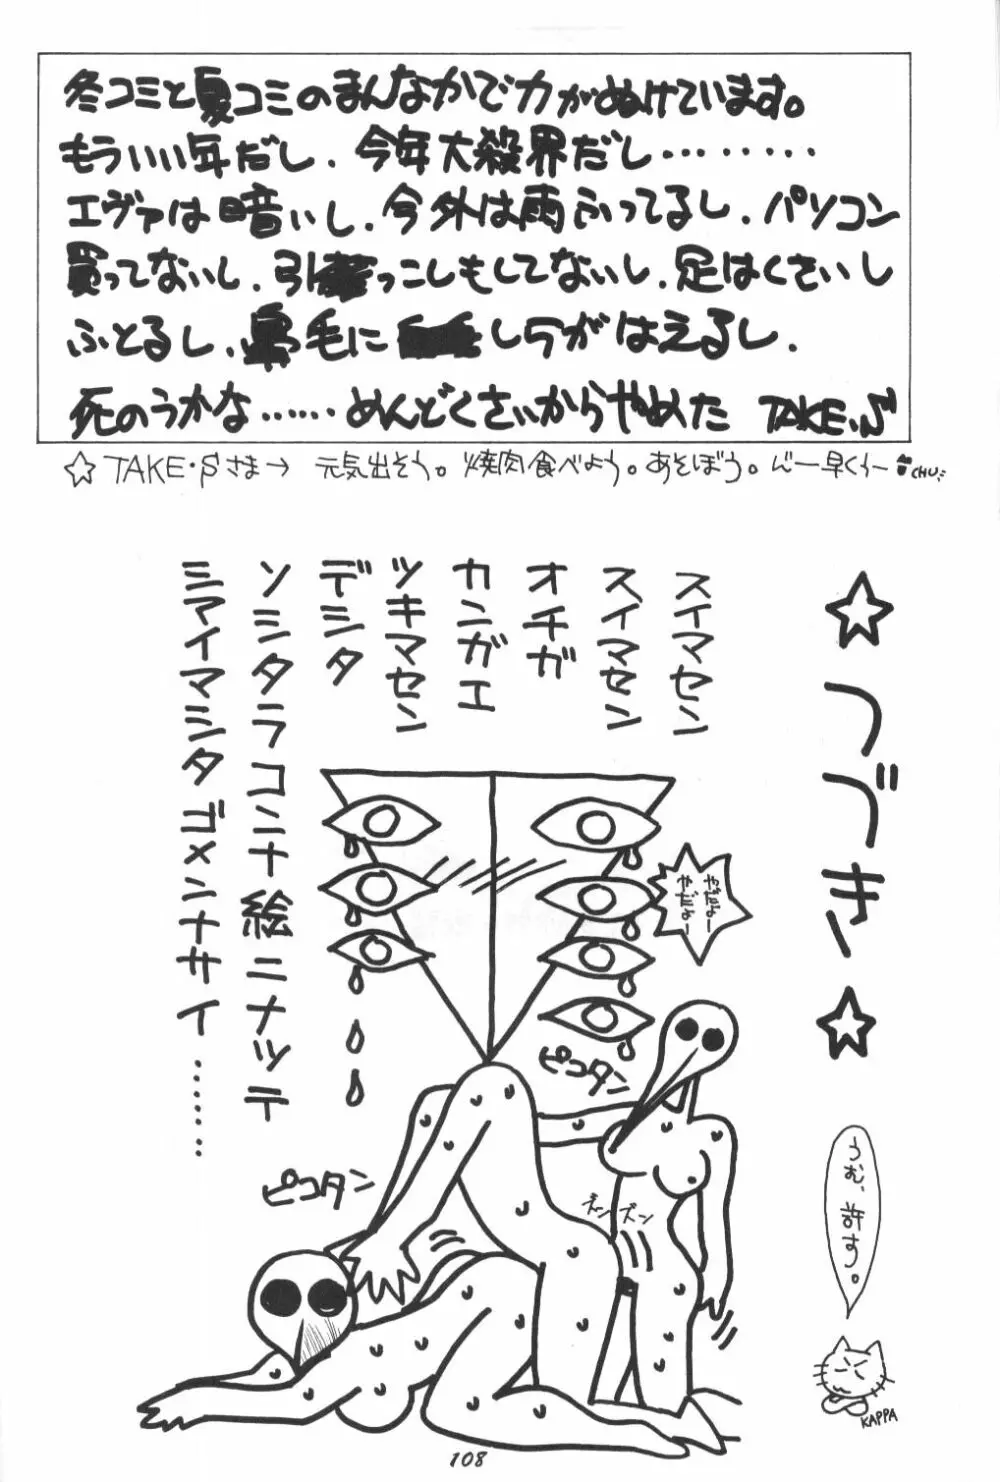 冬コミと夏コミのまんなかで力がぬけています。
もういい年だし、今年大殺界だし………
エヴァは暗いし、今外は雨ふってるし、パソコン
買ってないし、引っこしもしてないし、足はくさいし
ふとるし、鼻毛にしらががはえるし、
死のうかな……めんどくさいからやめた TAKE・S
☆TAKE・Sさま→ 元気出そう。焼肉食べよう。あそぼう。 早くぅー CHU
☆つづき☆
スイマセン
スイマセン
オチガ
カンガエ
ツキマセン
デシタ
ソシタラコンナ絵ニナッテ
シマイマシタゴメンナサイ……
やだよー
やだよー
ピコタン
ピコタン
ズン
ズン
うむ、許す。
KAPPA
108